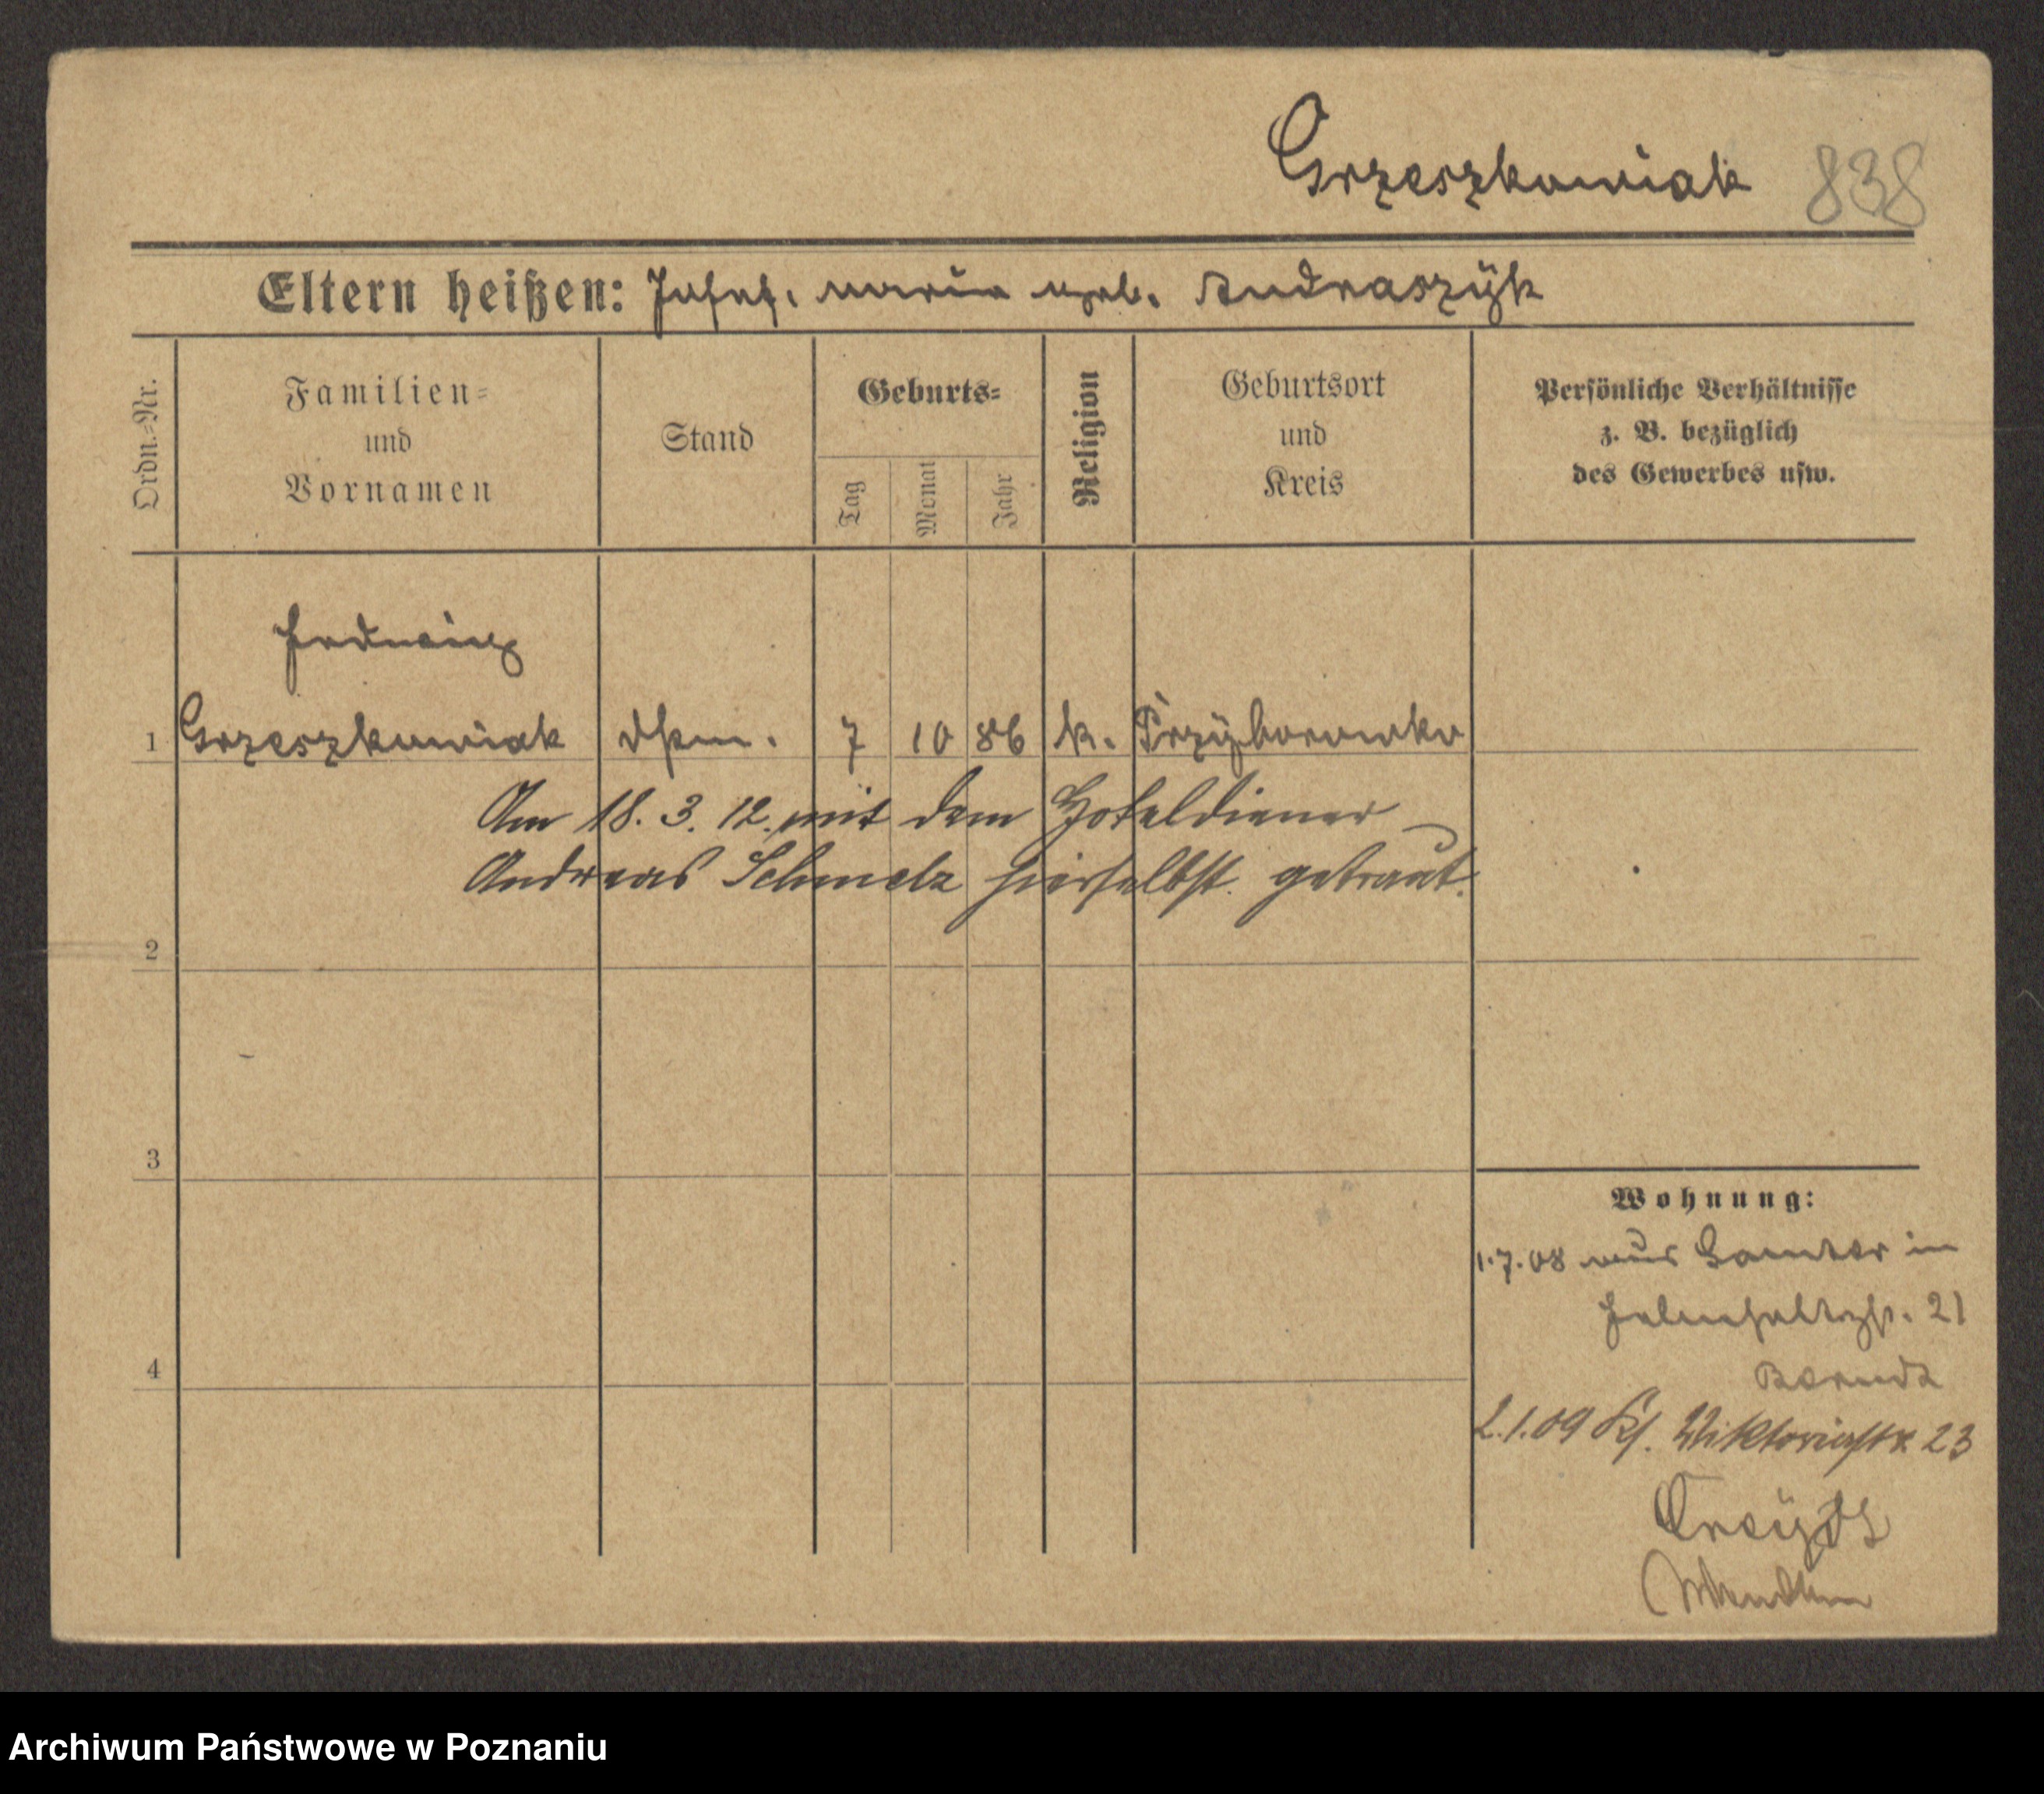 Grzeszkowiak 838
Eltern heißen: Josef. Maria geb. Andraszyk
Ordn.=Nr.
Familien=
und
Vornamen
Stand
Geburts=
Tag
Monat
Jahr
Religion
Geburtsort
und
Kreis
Persönliche Verhältnisse
z. B. bezüglich
des Gewerbes usw.
Hedwig
1 Grzeszkowiak 7 10 86 k. Przyborowko
Am 18. 3. 12. mit dem Hoteldiener
Andreas Schmelz hierselbst. getraut.
2
3
4
Wohnung:
1.7.08 aus Samter in
21
Berndt
2.1.09 Viktoriastr. 23
Archiwum Państwowe w Poznaniu